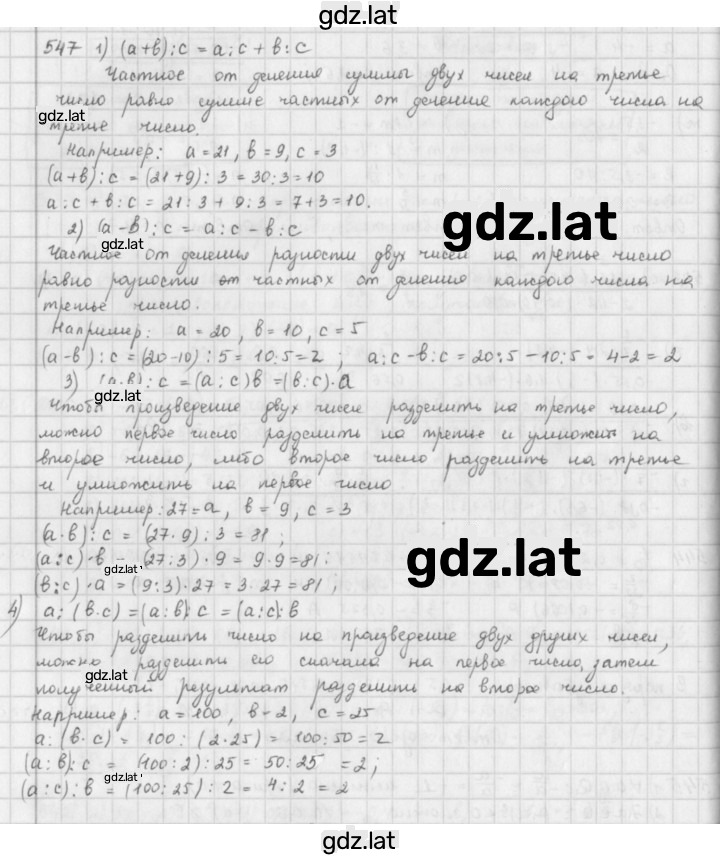 gdz.lat
547 1) (a+b):c = a:c + b:c
Частное от деления суммы двух чисел на третье
число равно сумме частных от деления каждого числа на
gdz.lat
третье число.
Например: a=21, b=9, c=3
(a+b):c = (21+9):3 = 30:3=10
a:c + b:c = 21:3 + 9:3 = 7+3=10.
gdz.lat
2) (a-b):c = a:c - b:c
gdz.lat
Частное от деления разности двух чисел на третье число
равно разности от частных от деления каждого числа на
третье число.
Например: a=20, b=10, c=5
(a-b):c = (20-10):5 = 10:5=2; a:c-b:c = 20:5-10:5= 4-2=2
3) (a·b):c = (a:c)b =(b:c)·a
gdz.lat
Чтобы произведение двух чисел разделить на третье число,
можно первое число разделить на третье и умножить на
второе число, либо второе число разделить на третье
и умножить на первое число.
Например: 27=a, b=9, c=3
gdz.lat
(a·b):c = (27·9):3 = 81;
gdz.lat
(a:c)·b = (27:3)·9 = 9·9=81;
(b:c)·a = (9:3)·27 = 3·27=81;
4) a:(b·c)=(a:b):c = (a:c):b
Чтобы разделить число на произведение двух других чисел,
можно разделить его сначала на первое число, затем
gdz.lat
полученный результат разделить на второе число.
Например: a=100, b=2, c=25
a:(b·c) = 100:(2·25) = 100:50=2
(a:b):c = (100:2):25 = 50:25 =2;
gdz.lat
(a:c):b = (100:25):2 = 4:2 = 2
gdz.lat